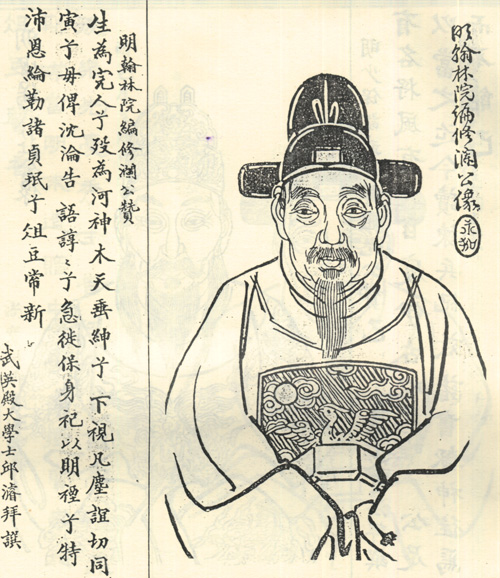 明翰林院編修瀾公像
明翰林院編修瀾公贊
生為完人兮歿為河神木天垂紳兮下視凡塵誼切同
寅兮毋俾沈淪告語諄〻兮急徙保身祀以明禋兮特
沛恩綸勒諸貞珉兮俎豆常新
武英殿大學士邱濬拜譔